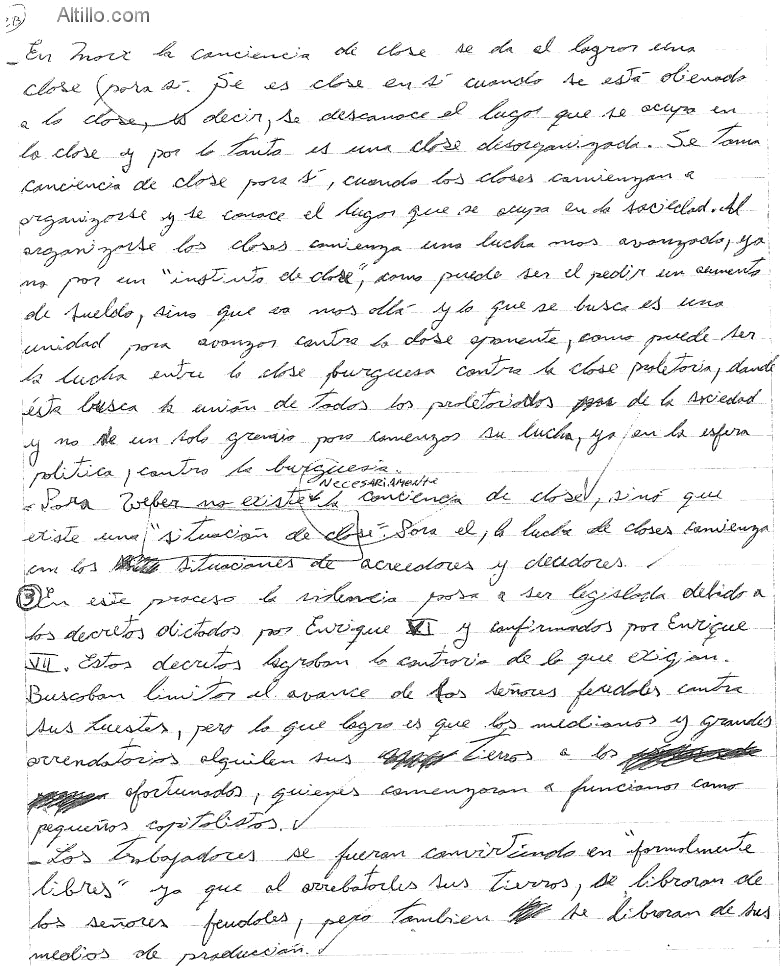 2B
Altillo.com
- En Marx la conciencia de clase se da al lograr una
clase para sí. Se es clase en sí cuando se está alienado
a la clase, es decir, se desconoce el lugar que se ocupa en
la clase y por lo tanto es una clase desorganizada. Se toma
conciencia de clase para sí, cuando las clases comienzan a
organizarse y se conoce el lugar que se ocupa en la sociedad. Al
organizarse las clases comienza una lucha mas avanzada, ya
no por un "instinto de clase", como puede ser el pedir un aumento
de sueldo, sino que va mas allá y lo que se busca es una
unidad para avanzar contra la clase oponente, como puede ser
la lucha entre la clase burguesa contra la clase proletaria, donde
ésta busca la unión de todos los proletariados de la sociedad
y no de un solo gremio para comenzar su lucha, ya en la esfera
politica, contra la burguesia.
NECESARIAMENTE
- Para Weber no existe la conciencia de clase, sinó que
existe una "situación de clase". Para el, la lucha de clases comienza
con las situaciones de acreedores y deudores.
3 En este proceso la violencia pasa a ser legislada debido a
los decretos dictados por Enrique VI y confirmados por Enrique
VII. Estos decretos lograban lo contrario de lo que exigian.
Buscaban limitar el avance de los señores feudales contra
sus huestes, pero lo que logra es que los medianos y grandes
arrendatarios alquilen sus tierras a los
afortunados, quienes comenzaran a funcionar como
pequeños capitalistas.
- Los trabajadores se fueran convirtiendo en "formalmente
libres" ya que al arrebatarles sus tierras, se libraran de
los señores feudales, pero tambien se libraran de sus
medios de producción.